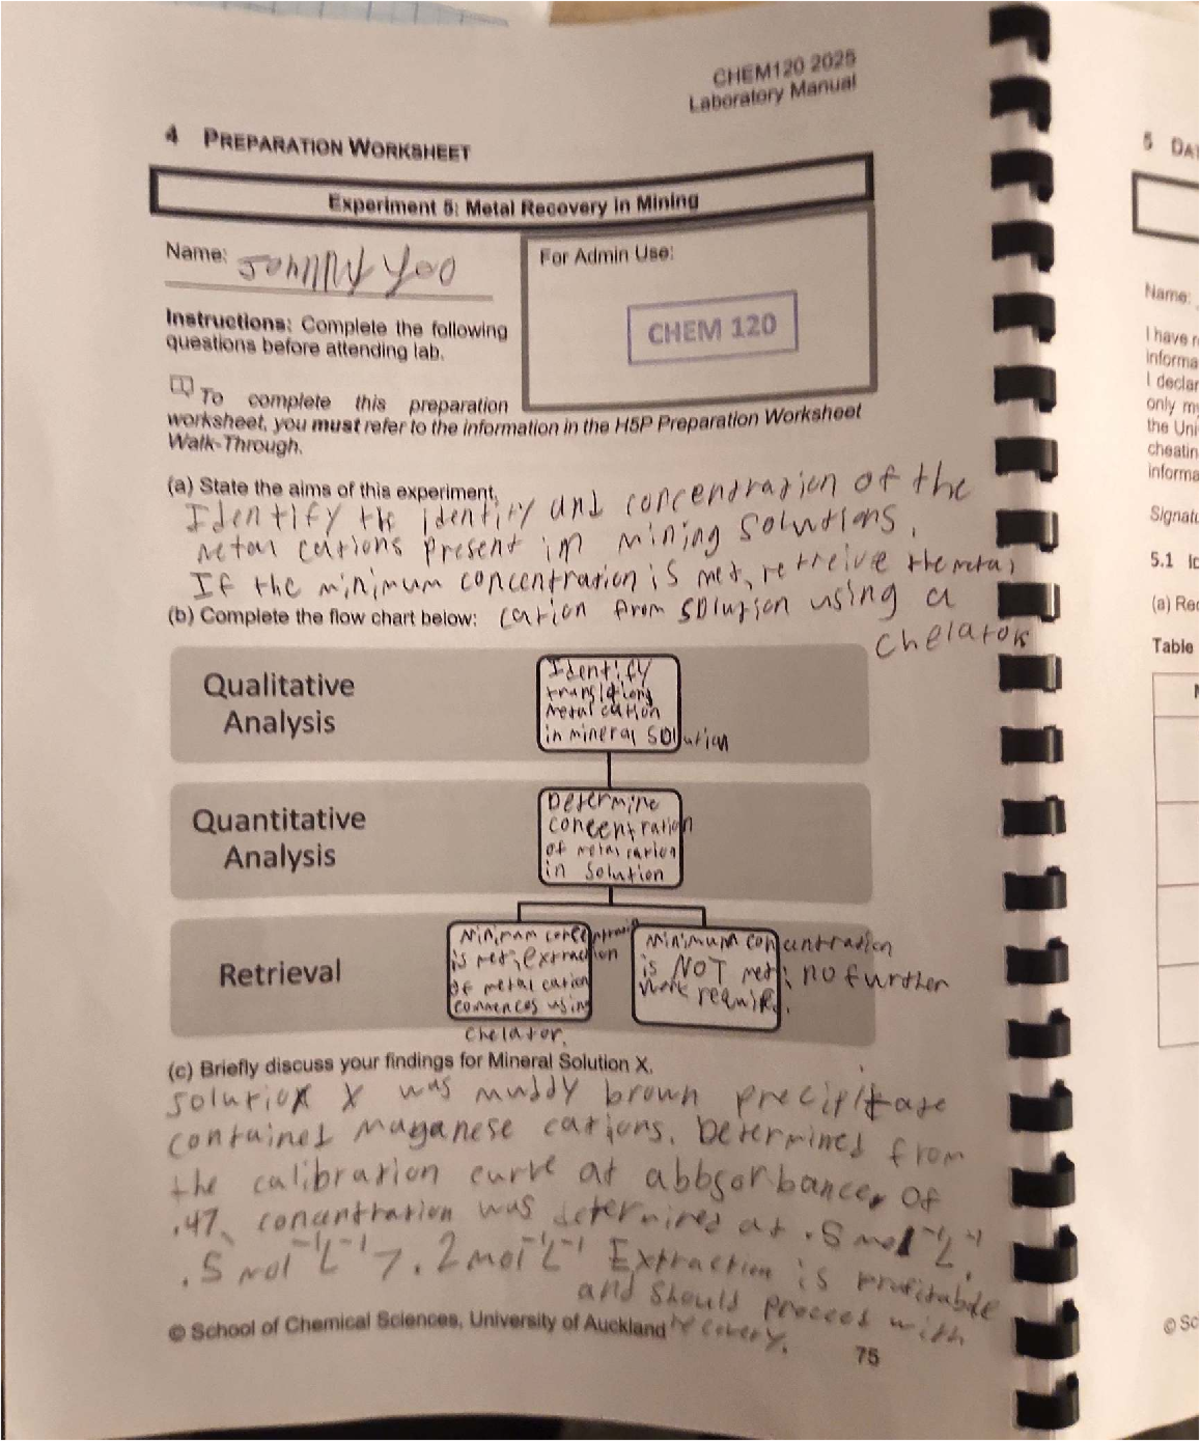 CHEM120 2025
Laboratory Manual
4 PREPARATION WORKSHEET
Experiment 5: Metal Recovery in Mining
Name: Johnny Yoo
For Admin Use:
CHEM 120
Instructions: Complete the following
questions before attending lab.
To complete this preparation
worksheet, you must refer to the information in the H5P Preparation Worksheet
Walk-Through.
(a) State the aims of this experiment.
Identify the identity and concentration of the
metal cations present in mining solutions.
If the minimum concentration is met, retreive the metal
(b) Complete the flow chart below: cation from solution using a
chelator
Qualitative
Analysis
Identify
metal cation
in mineral solution
Quantitative
Analysis
Determine
concentration
of metal cation
in solution
Retrieval
Minimum concentration
is met, extraction
of metal cation
commences using
chelator.
Minimum concentration
is NOT met; no further
work required.
(c) Briefly discuss your findings for Mineral Solution X.
solution X was muddy brown precipitate
contained Maganese cations. Determined from
the calibration curve at abbsorbance, of
.47, concentration was determined at .5 mol⁻¹L⁻¹.
.5 mol⁻¹L⁻¹ > .2 mol⁻¹L⁻¹ Extraction is profitable
and should proceed with
© School of Chemical Sciences, University of Auckland recovery.
75
5 DA
Name:
I have r
informa
I declar
only my
the Uni
cheatin
informa
Signatu
5.1 Id
(a) Rec
Table
© Sc